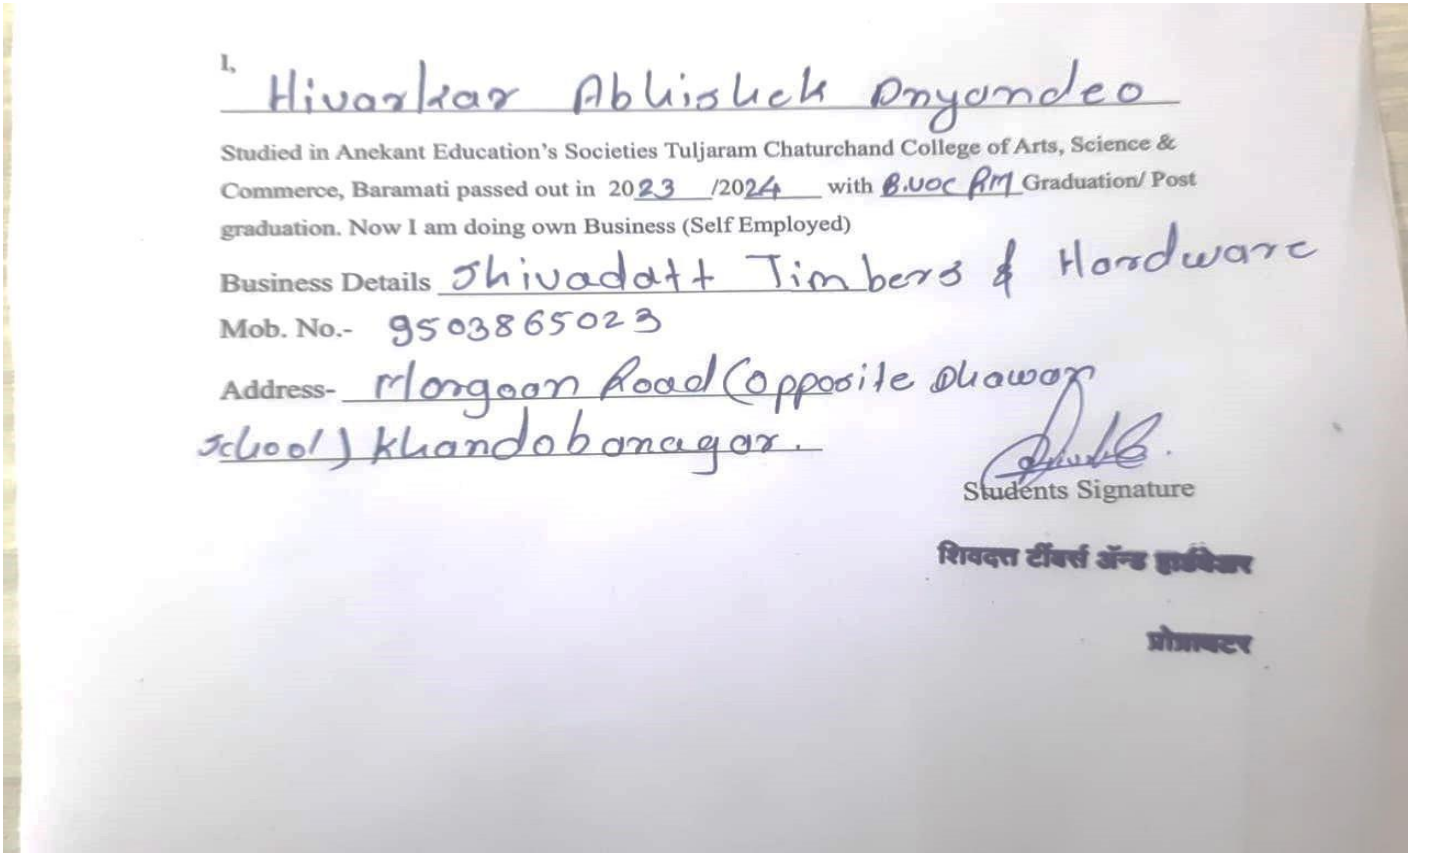 I,
Hivarkar Abhishek Dnyandeo
Studied in Anekant Education's Societies Tuljaram Chaturchand College of Arts, Science &
Commerce, Baramati passed out in 2023 /2024 with B.VOC RM Graduation/ Post
graduation. Now I am doing own Business (Self Employed)
Business Details Shivadatt Timbers & Hardware
Mob. No.- 9503865023
Address- Morgaon Road (Opposite Dhawan
School) Khandobanagar.
Students Signature
शिवदत्त टींबर्स ॲन्ड हार्डवेअर
प्रोप्रायटर